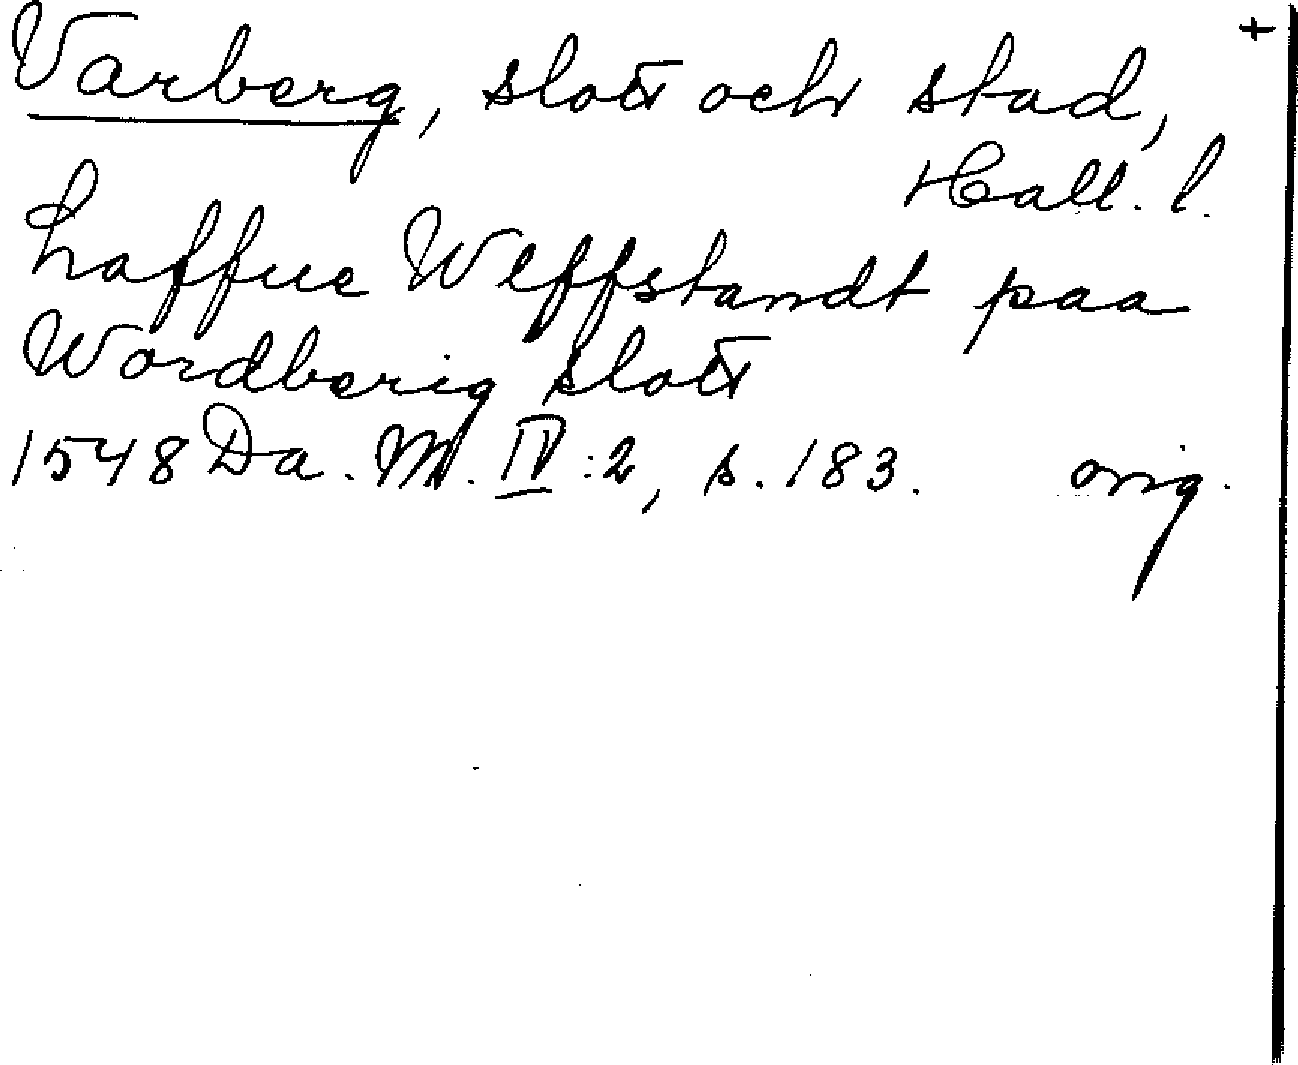 Varberg, slott och stad, +
Hall. l.
Laffue Weffstandt paa
Wordberig slott
1548 Da. M. IV:2, s. 183. orig.